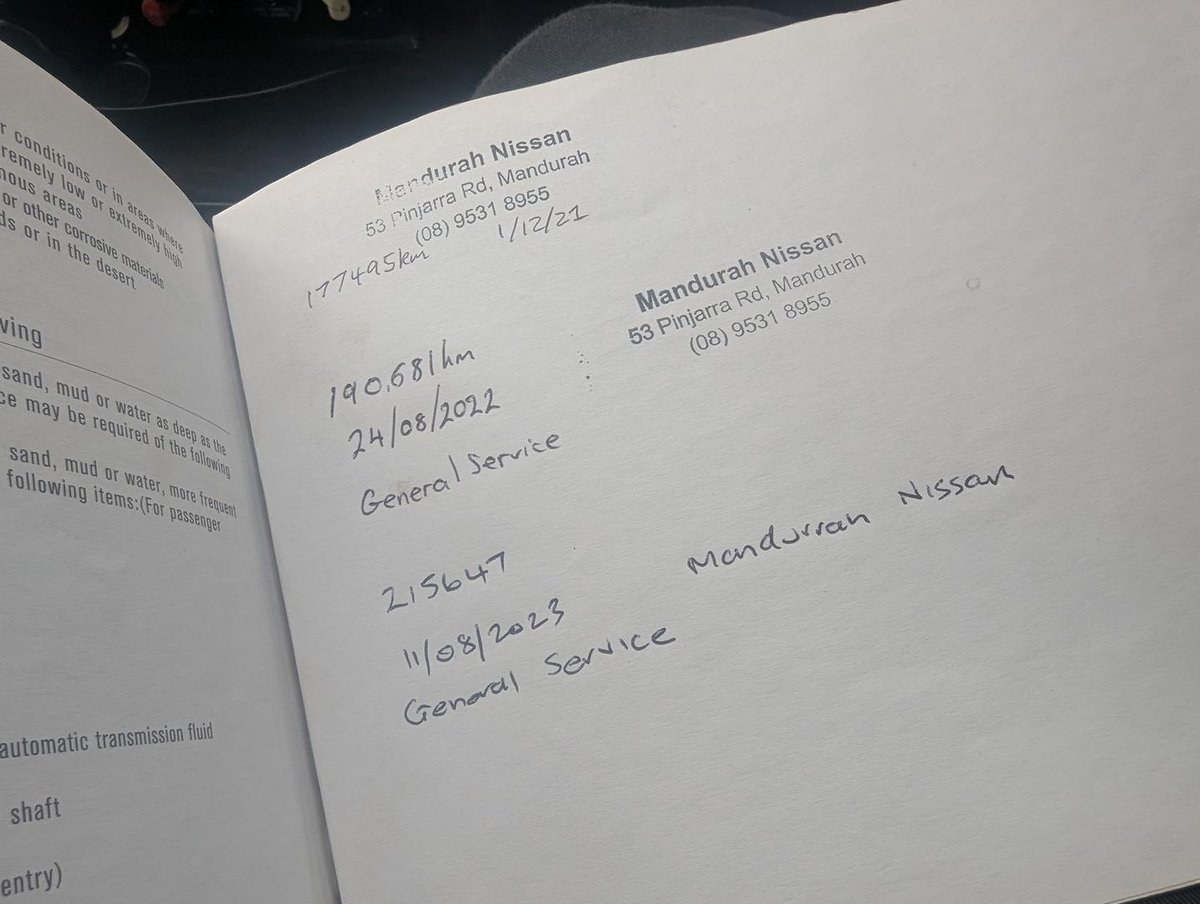 r conditions or in areas where
remely low or extremely high
nous areas
or other corrosive materials
ds or in the desert
ving
sand, mud or water as deep as the
ce may be required of the following
sand, mud or water, more frequent
following items:(For passenger
automatic transmission fluid
shaft
entry)
Mandurah Nissan
53 Pinjarra Rd, Mandurah
(08) 9531 8955
177495km 1/12/21
Mandurah Nissan
53 Pinjarra Rd, Mandurah
(08) 9531 8955
190,681km
24/08/2022
General Service
215647
Mandurrah Nissan
11/08/2023
General Service